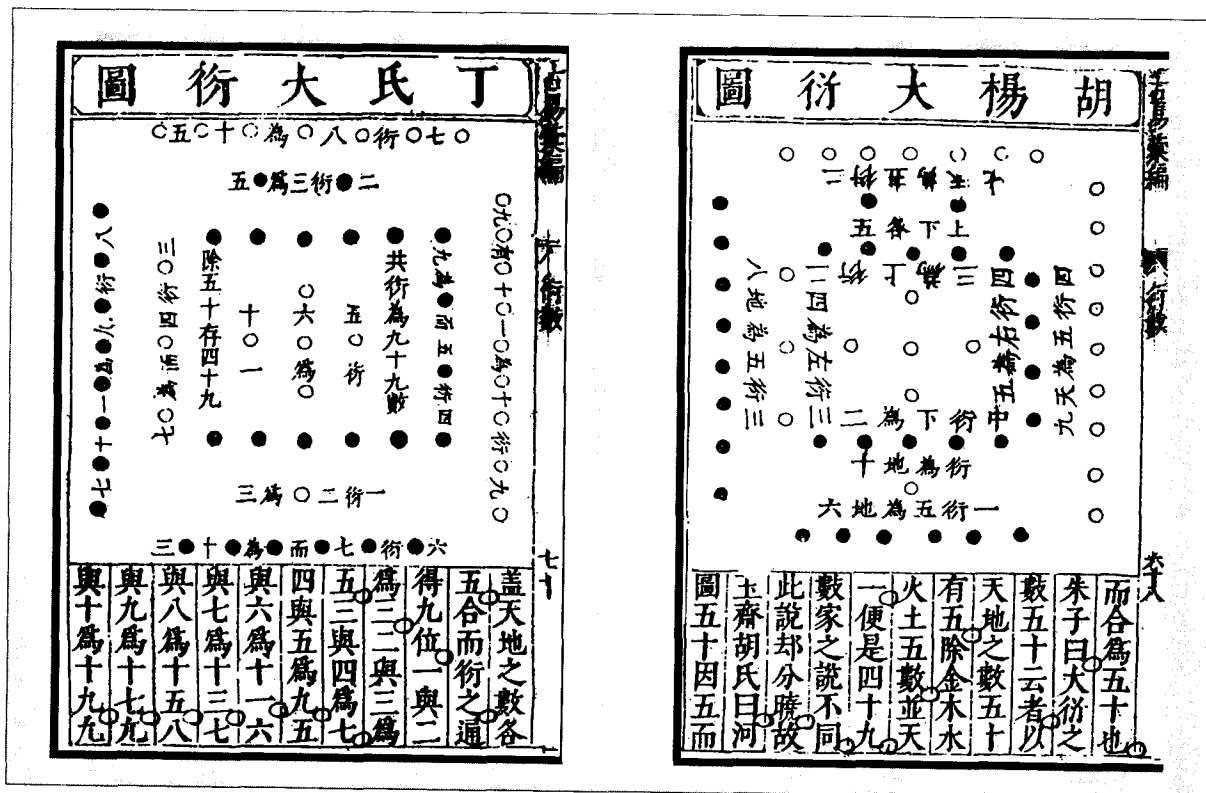 胡楊大衍圖
衍數
六十八
二衍五為天七
上下各五
衍上為三
四衍五為天九
四衍右為五
中衍下為二
三衍左為四
三衍五為地八
衍為地十
一衍五為地六
而合為五十也
朱子曰大衍之
數五十云者以
天地之數五十
有五除金木水
火土五數並天
一便是四十九
數家之說不同
此說却分曉故
玉齋胡氏曰河
圖五十因五而
丁氏大衍圖
衍數
七十
七衍八為十五
二衍三為五
九衍十為一十有九
四衍五而為九
共衍為九十九數
五衍
六為
十一
除五十存四十九
三衍四而為七
八衍九為一十七
一衍二為三
六衍七而為十三
蓋天地之數各
五合而衍之通
得九位一與二
為三二與三為
五三與四為七
四與五為九五
與六為十一六
與七為十三七
與八為十五八
與九為十七九
與十為十九九